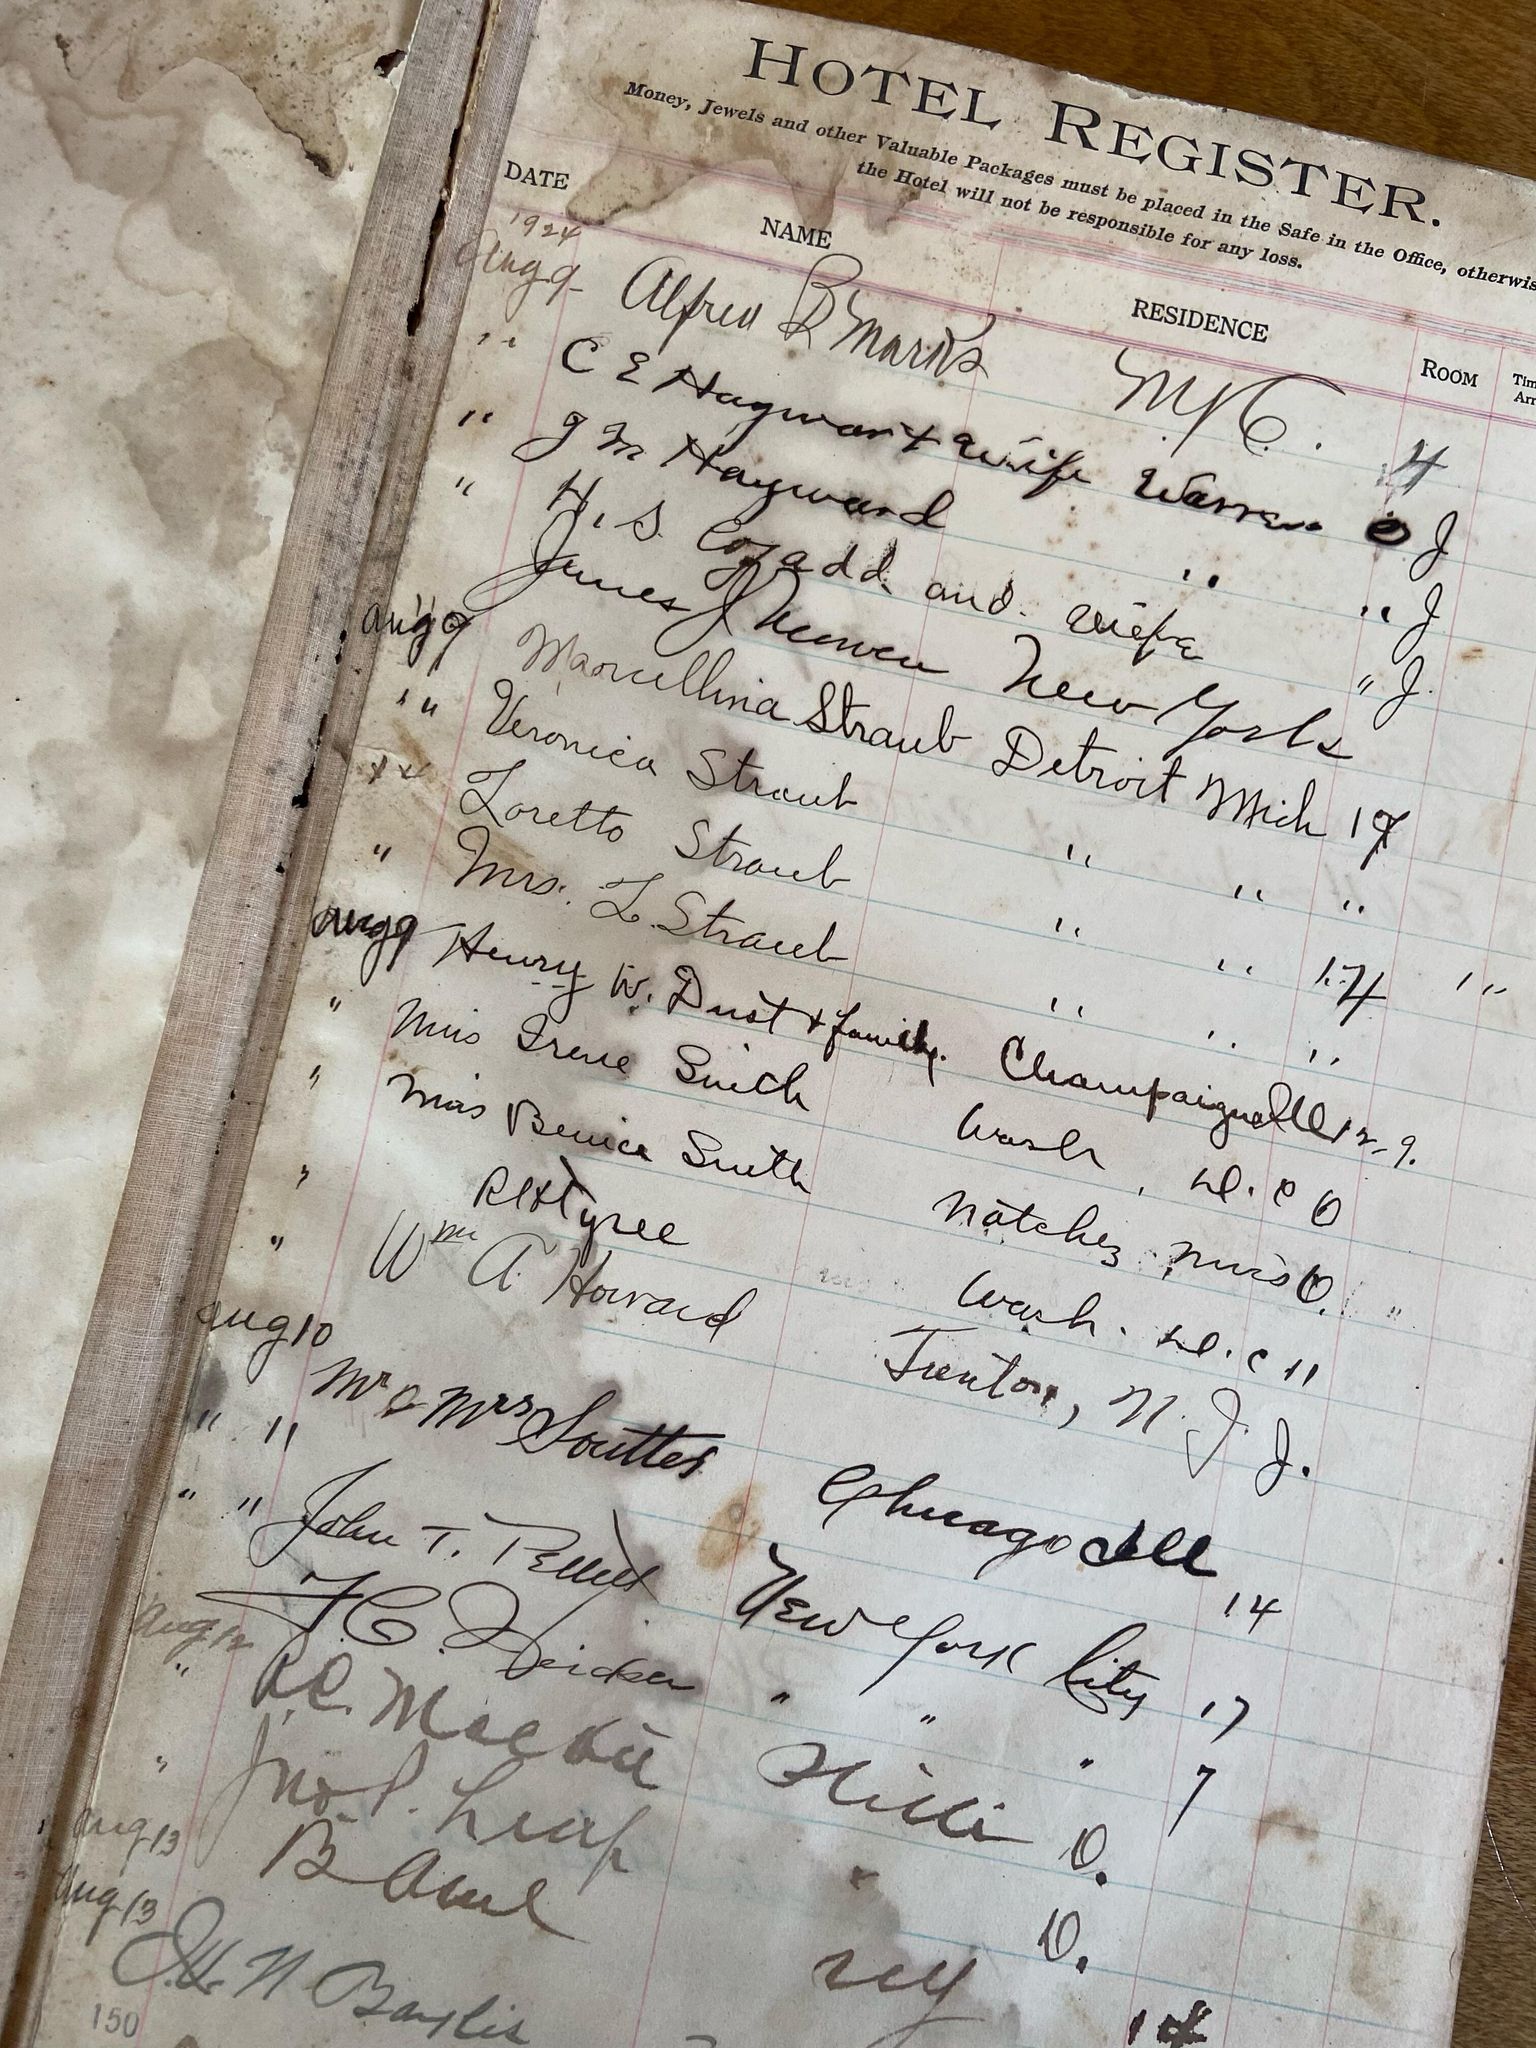 HOTEL REGISTER.
Money, Jewels and other Valuable Packages must be placed in the Safe in the Office, otherwis
the Hotel will not be responsible for any loss.
DATE NAME RESIDENCE ROOM Tim Arr
1924
Aug 9 Alfred B Marks N.Y.C. 4
" C E Hayward & Wife Warren O J
" J M Hayward " " J
" H. S. Cozadd and wife " J.
James J New York
Aug 9 Marcellina Straub Detroit Mich 17
" Veronica Straub " " "
" Loretto Straub " " 17 "
" Mrs. L. Straub " " "
Aug 9 Henry W. Dust & family. Champaign Ill 12-9.
" Miss Irene Smith Wash, D.C O
" Miss Bernice Smith Natchez, Miss O. "
" Tyree Wash. D.C "
" Wm A. Howard Trenton, N.J. J.
Aug 10 Mr & Mrs Soutter Chicago Ill 14
" " John T. New York City 17
" " F.C. " " " 7
Aug 12 R.C. O.
" Jno. P. " O.
Aug 13 B NY 14
Aug 13 N Baylis
150